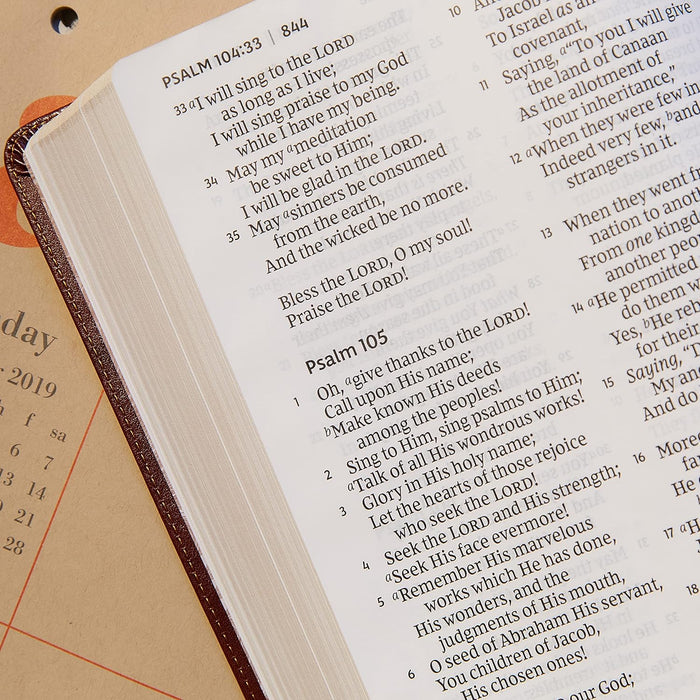 PSALM 104:33 | 844
33 aI will sing to the LORD
as long as I live;
I will sing praise to my God
while I have my being.
34 May my ameditation
be sweet to Him;
I will be glad in the LORD.
35 May asinners be consumed
from the earth,
And the wicked be no more.
Bless the LORD, O my soul!
Praise the LORD!
Psalm 105
1 Oh, agive thanks to the LORD!
Call upon His name;
bMake known His deeds
among the peoples!
2 Sing to Him, sing psalms to Him;
aTalk of all His wondrous works!
3 Glory in His holy name;
Let the hearts of those rejoice
who seek the LORD!
4 Seek the LORD and His strength;
aSeek His face evermore!
5 aRemember His marvelous
works which He has done,
His wonders, and the
judgments of His mouth,
6 O seed of Abraham His servant,
You children of Jacob,
His chosen ones!
our God;
10
Jacob
To Israel as an
covenant,
11 Saying, a"To you I will give
the land of Canaan
As the allotment of
your inheritance,"
12 aWhen they were few in
Indeed very few, band
strangers in it.
13 When they went
nation to
From one
another
14 aHe permitted
do them
Yes, bHe
for
15 Saying,
My
And do
16
He
17
18
2019
f sa
6 7
13 14
21
28